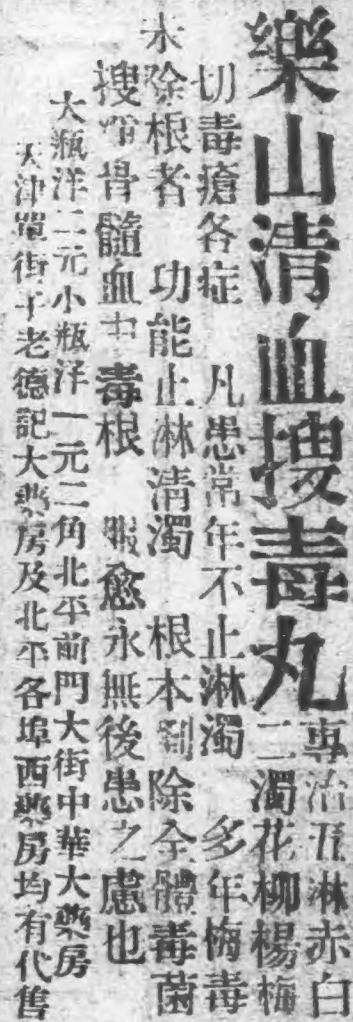 樂山清血搜毒丸
專治五淋赤白
二濁花柳楊梅
切毒瘡各症 凡患常年不止淋濁 多年梅毒
未除根者 功能止淋清濁 根本剷除全體毒菌
搜骨髓血中毒根 服愈永無後患之慮也
大瓶洋二元小瓶洋一元二角北平前門大街中華大藥房
天津單街子老德記大藥房及北平各埠西藥房均有代售